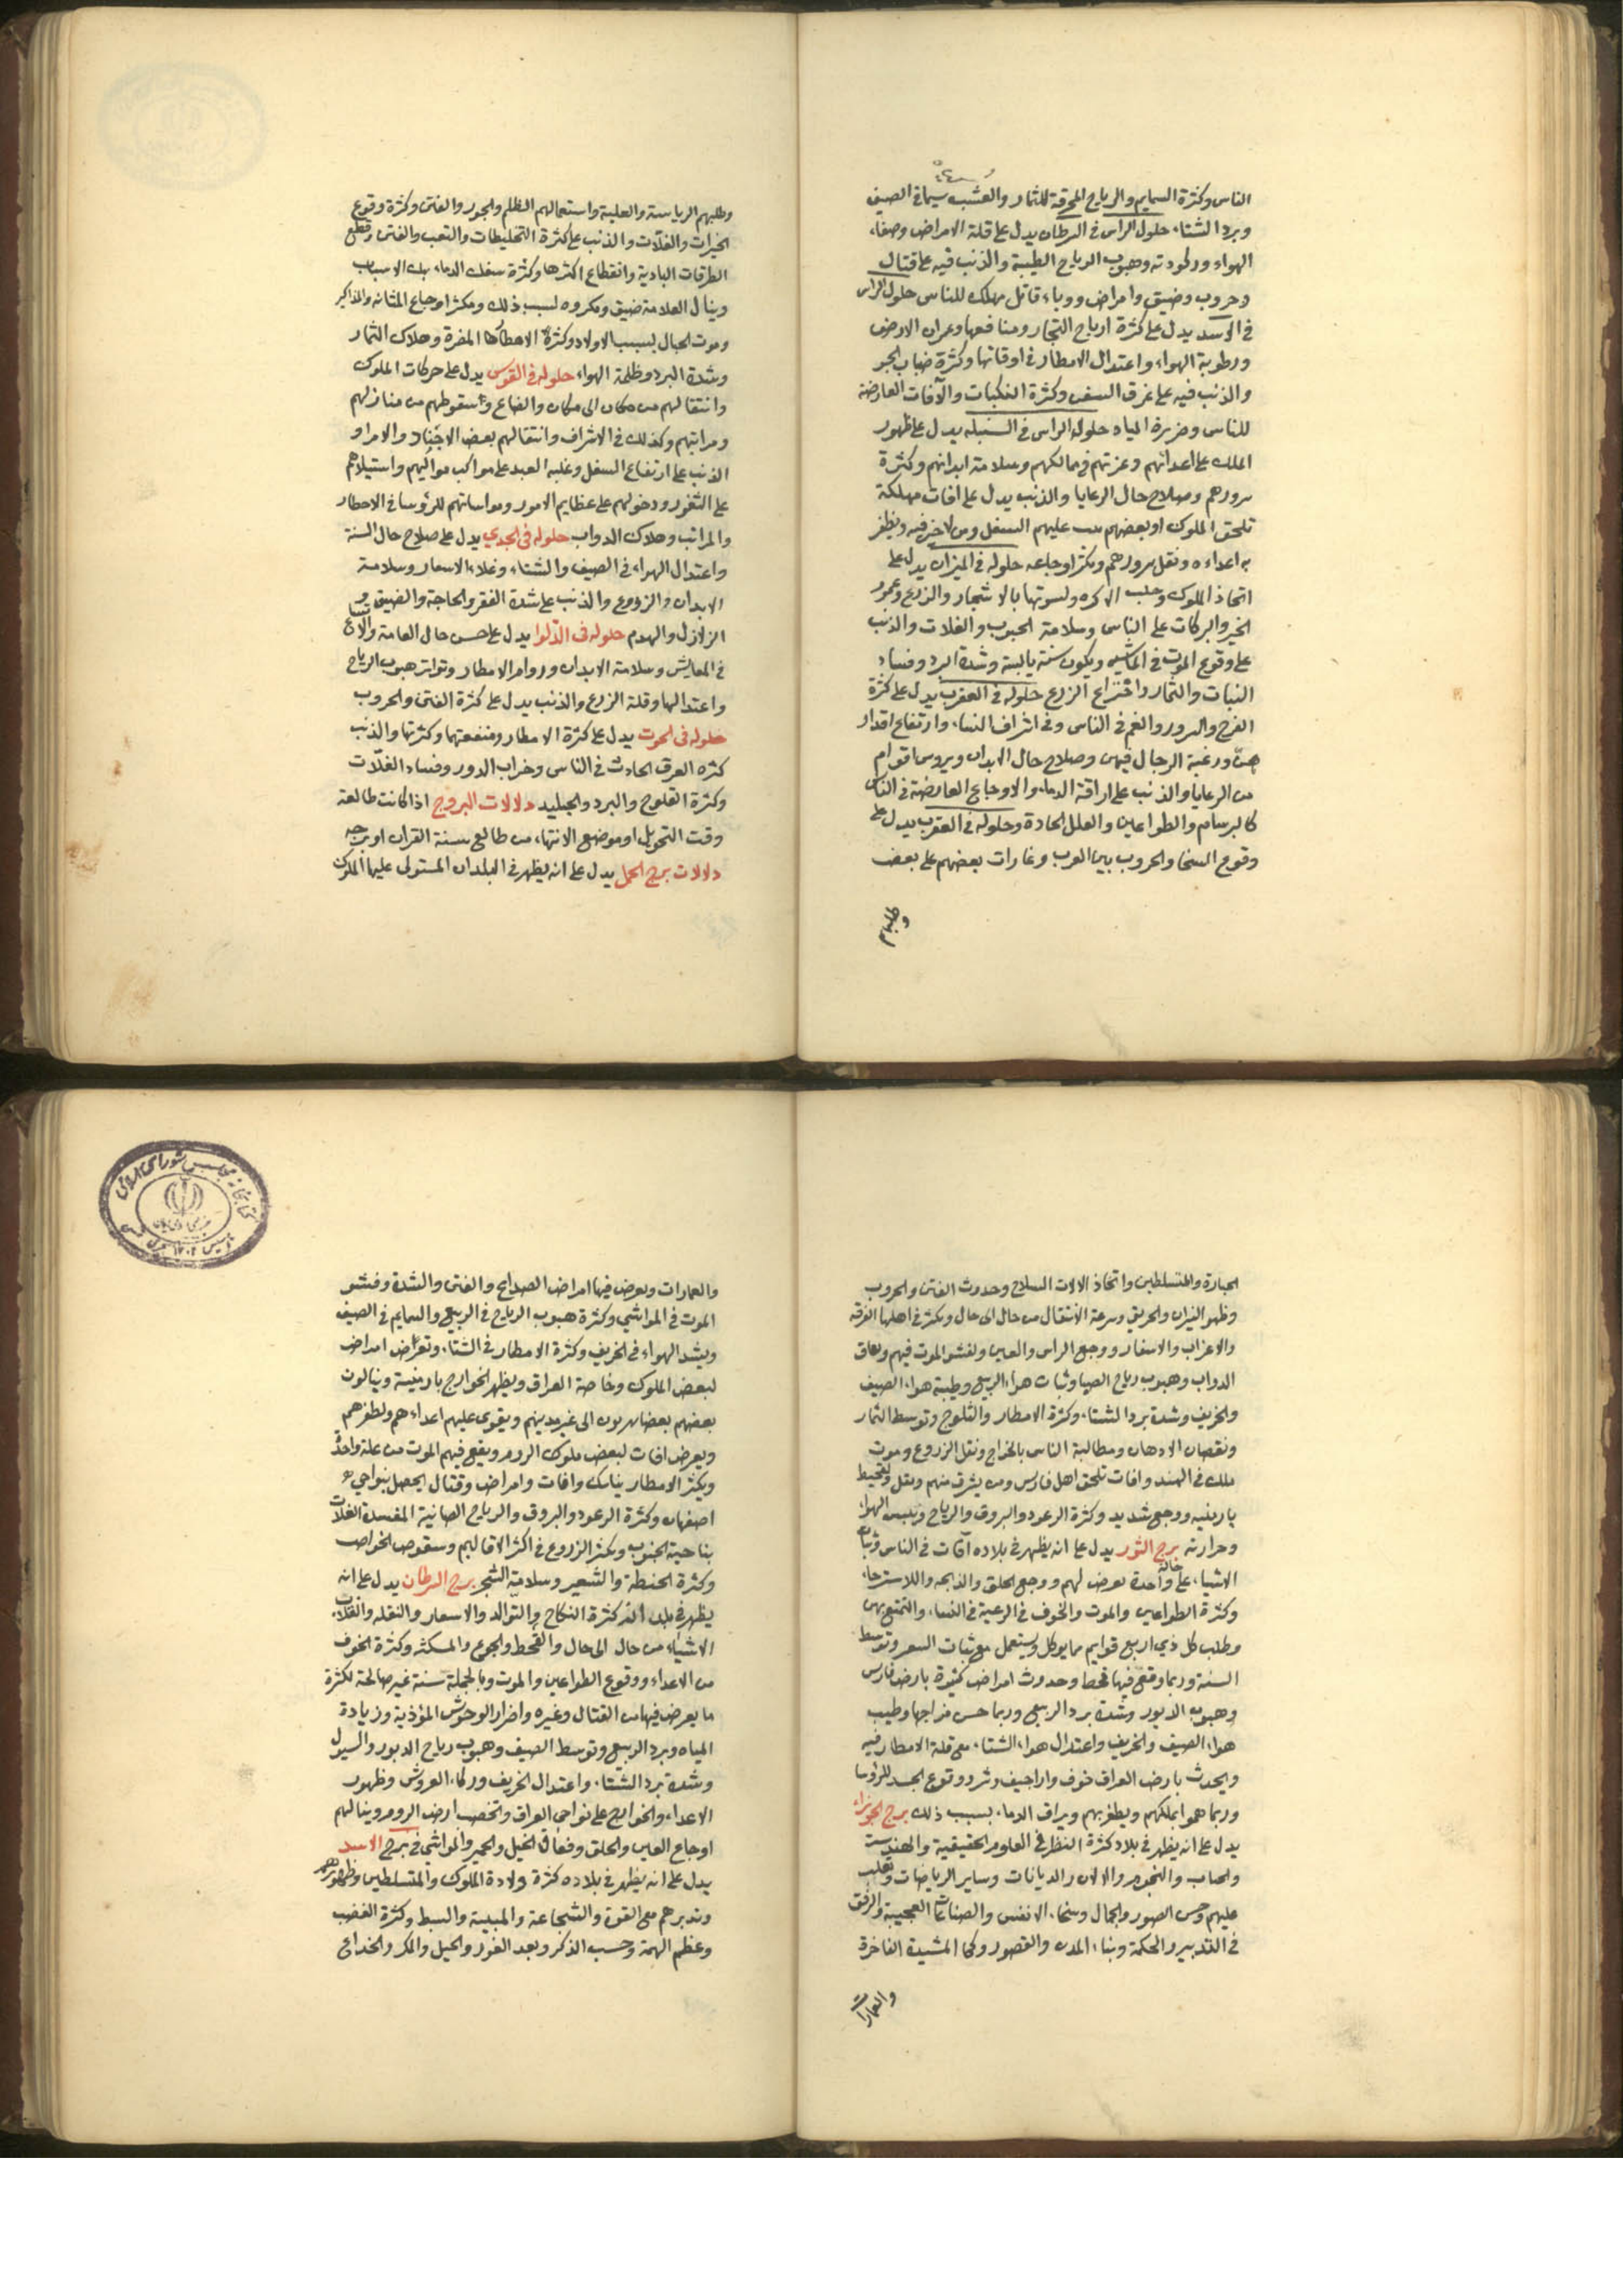 الناس وكثرة السمايم والرياح المحرقة للثمار والعشب سيما في الصيف
وبرد الشتاء حلول الراس في السرطان يدل على قلة الامراض وصفاء
الهواء ورطوبته وهبوب الرياح الطيبة والذنب فيه على قتال
وحروب وضيق وامراض ووباء قاتل مهلك للناس حلول الراس
في الاسد يدل على كثرة ارباح التجار ومنافعها وعمران الارض
ورطوبة الهواء واعتدال الامطار في اوقاتها وكثرة ضباب الجو
والذنب فيه على غرق السفن وكثرة النكبات والآفات العارضة
للناس وغزيرة المياه حلوله الراس في السنبله يدل على ظهور
الملك على اعدائهم وعزتهم في ممالكهم وسلامة ابدانهم وكثرة
سرورهم وصلاح حال الرعايا والذنب يدل على افات مهلكة
تلحق الملوك او بعضهم عليهم السفل ومن لا خير فيه ويظفر
به اعداءه ونقل سرورهم ويكثر اوجاعه حلوله في الميزان يدل على
اتخاذ الملوك وجلب الاكره ولسوتها بالاشجار والزرع وعموم
الخير والبركات على الناس وسلامة الحبوب والغلات والذنب
على وقوع الموت في الماشيه ويكون سنة يابسة وشدة البرد وفساد
النبات والثمار واختراع الزرع حلوله في العقرب يدل على كثرة
الفرح والسرور والغم في الناس وفي اشراف النساء وارتفاع اقدار
هن ورغبة الرجال فيهن وصلاح حال الابدان ويروس اقوام
من الرعايا والذنب على اراقة الدماء والاوجاع العارضة في الناس
كالبرسام والطواعين والعلل الحادة وحلوله في العقرب يدل على
وقوع السخا والحروب بين العرب وغارات بعضهم على بعض
وطلبهم
وطلبهم الرياسة والغلبة واستعمالهم الظلم والجور والفتن وكثرة وقوع
الخيرات والغلات والذنب على كثرة التخليطات والتعب والفتن وقطع
الطرقات البادية وانقطاع اكثرها وكثرة سفك الدماء بتلك الاسباب
وينال العلامة ضيق ومكروه لسبب ذلك ويكثر اوجاع المثانه والمذاكير
وموت الحبال بسبب الاولاد وكثرة الامطار المضرة وهلاك الثمار
وشدة البرد وظلمة الهواء حلوله في القوس يدل على حركات الملوك
وانتقالهم من مكان الى مكان والضاع وسقوطهم من منازلهم
ومراتبهم وكذلك في الاشراف وانتقالهم بعض الاجناد والامراو
الذنب على ارتفاع السفل وغلبه العبد على مواكب مواليهم واستيلاهم
على الثغور ودخولهم على عظايم الامور ومواساتهم للرؤسا في الاخطار
والمراتب وهلاك الدواب حلوله في الجدي يدل على صلاح حال السنة
واعتدال الهواء في الصيف والشتاء وغلاء الاسعار وسلامة
الابدان والزروع والذنب على شدة الفقر والحاجة والضيق و
الزلازل والهدم حلوله في الدلوا يدل على حسن حال العامة والاتساع
في المعايش وسلامة الابدان ودوام الامطار وتواتر هبوب الرياح
واعتدالها وقلة الزرع والذنب يدل على كثرة الفتن والحروب
حلوله في الحوت يدل على كثرة الامطار ومنفعتها وكثرتها والذنب
كثره الغرق الحادث في الناس وخراب الدور وفساد الغلات
وكثرة الثلوج والبرد والجليد دلالات البروج اذا كانت طالعة
وقت التحويل او موضع الانتهاء من طالع سنة القران او برجه
دلالات برج الحمل يدل على انه يظهر في البلدان المستولى عليها الملوك
الجبارة والمتسلطين واتخاذ الالات السلاح وحدوث الفتن والحروب
وظهور النيران والحريق وسرعة الانتقال من حال الى حال ويكثر في اهلها الفرقة
والاعزاب والاسفار ووجع الراس والعين ولفشو الموت فيهم
الدواب وهبوب رياح الصبا وثبات هواء الربيع وطيبة هواء الصيف
والخريف وشدة برد الشتاء وكثرة الامطار والثلوج وتوسط الثمار
ونقصان الادهان ومطالبة الناس بالخراج ونقل الزروع وموت
ملك في الهند وافات تلحق اهل فارس ومن يشرف منهم ويقل ولقحيط
بارمنيه ووجع شديد وكثرة الرعود والبروق والرياح ويبس الهواء
وحرارته برج الثور يدل على انه يظهر في بلاده آفات في الناس وثبات
الاشياء على حالة واحدة يعرض لهم ووجع الحلق والذبحه واللاسترخاء
وكثرة الطواعين والموت والخوف في الرعية في النساء والتمتع بهن
وطلب كل ذي اربع قوايم مما يوكل ويستعمل مع ثبات السعر وتوسط
السنة وربما وقع فيها قحط وحدوث امراض كثيرة بارض فارس
وهبوب الدبور وشدة برد الربيع وربما حسن مزاجها وطيب
هواء الصيف والخريف واعتدال هواء الشتاء مع قلة الامطار فيه
ويحدث بارض العراق خوف واراجيف وشر ووقوع الحسد للرؤسا
وربما هموا بملكهم ويظفر بهم ويراق الدماء بسبب ذلك برج الجوزاء
يدل على انه يظهر في بلاد كثرة النظر في العلوم الحقيقية والهندسة
والحساب والنجوم والالات والديانات وساير الرياضات ويغلب
عليهم حسن الصور والجمال وسخاء الانفس والصناعات العجيبة والرفق
في التدبير والحكمة وبناء المدن والقصور وكما المشيدة الفاخرة
والعمارات
والعمارات ويعرض فيها امراض الصداع والفتن والشدة وفشو
الموت في المواشي وكثرة هبوب الرياح في الربيع والسمايم في الصيف
ويشد الهواء في الخريف وكثرة الامطار في الشتاء وتعرض امراض
لبعض الملوك وخاصة العراق ويظهر الخوارج بارمنيسة وينالون
بعضهم بعضا يهربون الى غير مدينهم ويقوى عليهم اعداءهم ولظفرهم
ويعرض افات لبعض ملوك الروم ويقع فيهم الموت من علة واحدة
ويكثر الامطار بناسك وافات وامراض وقتال يحصل بنواحي
اصفهان وكثرة الرعود والبروق والرياح الصانية المفسدة الغلات
بناحية الجنوب ويكثر الزروع في اكثر الاقاليم وسقوص الخواص
وكثرة الحنطة والشعير وسلامة الشجر برج السرطان يدل على انه
يظهر في بلدانه كثرة النكاح والتوالد والاسعار والنقله وانقلاب
الاشياء من حال الى حال والقحط والجوع والمسكنه وكثرة الخوف
من الاعداء ووقوع الطواعين والموت وبالجملة سنة غير صالحة لكثرة
ما يعرض فيها من القتال وغيره واضرار الوحوش المؤذية وزيادة
المياه وبرد الربيع وتوسط الصيف وهبوب رياح الدبور والسيول
وشدة برد الشتاء واعتدال الخريف وركاء العروش وظهور
الاعداء والخوارج على نواحى العراق وتخصب ارض الروم وينالهم
اوجاع العين والحلق وفعاق الخيل والحمير والمواشي في برج الاسد
يدل على انه يظهر في بلاده كثرة ولادة الملوك والمتسلطين وظهورهم
وتدبرهم مع القوة والشجاعة والمبيية والسط وكثرة الغضب
وعظم الهمة وحسب الذكر وبعد الغور والحيل والمكر والخداع